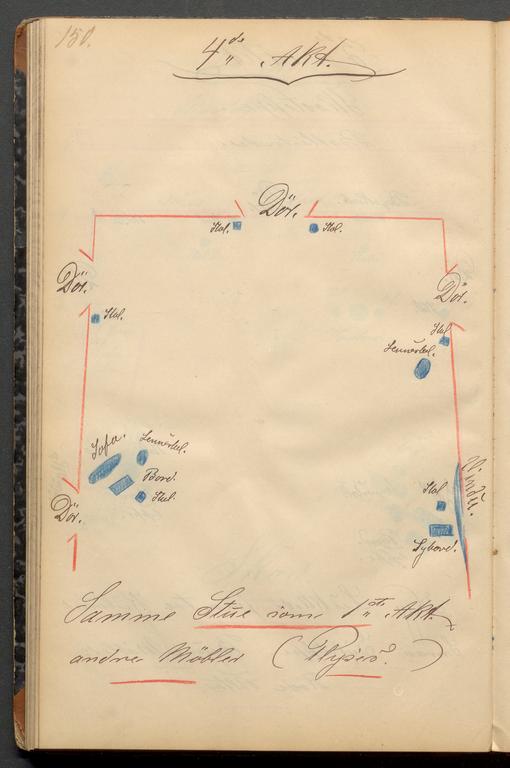 150.
4de Akt.
Dör.
Stol. Stol.
Dör. Dör.
Stol. Stol
Lænestol.
Sofa. Lænestol.
Bord. Vindu.
Stol. Stol
Dör.
Sybord.
Samme Stue som 1ste Akt.
andre Möbler (Plyses.)